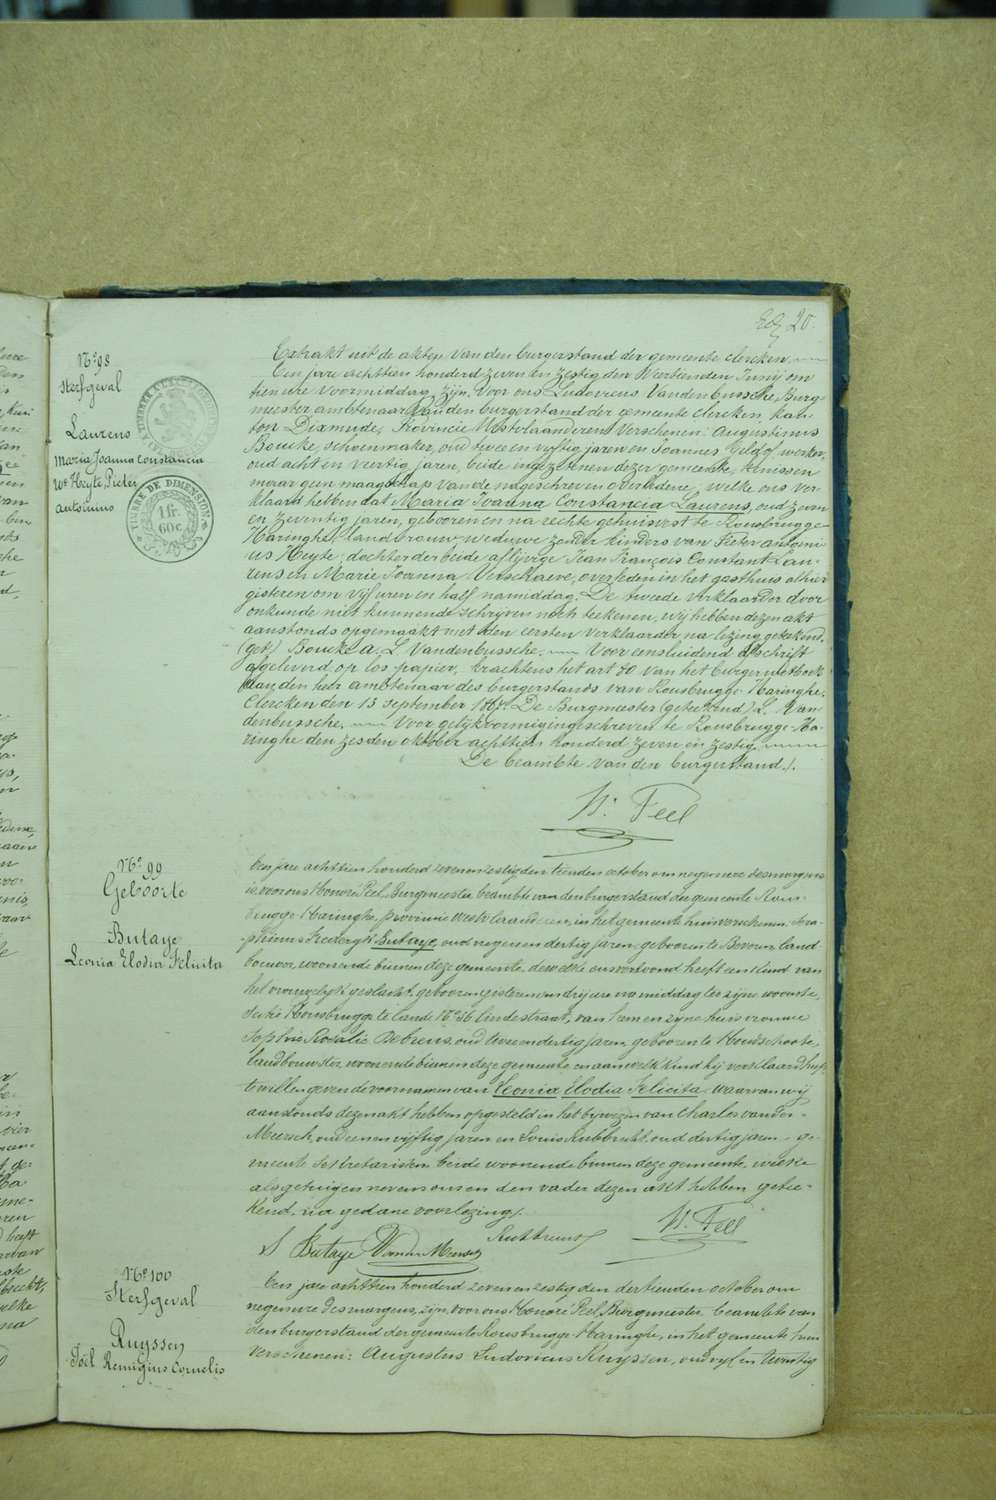 20.
Nº 98
Sterfgeval
Laurens
Maria Joanna Constancia
We Heyte Pieter
Antonius
TIMBRE DE DIMENSION
1 fr.
60 c.
Extrakt uit de akten van den burgerstand der gemeente Clercken.
Een jare achttien honderd zeven en zestig den Veertienden Junij om
tien ure voormiddag, zijn voor ons Ludovicus Vandenbussche Burg-
meester ambtenaar van den burgerstand der gemeente Clercken, kan-
ton Dixmude, Provincie Westvlaanderen, verschenen: Augustinus
Boucke, schoenmaker, oud twee en vyftig jaren en Joannes Gildof werker,
oud acht en veertig jaren, beide ingezetenen dezer gemeente, kenissen
maar geen maagschap van de nageschreven overledene, welke ons ver-
klaard hebben dat Maria Joanna Constancia Laurens, oud zeven
en zeventig jaren, geboren en na rechte gehuisvest te Rousbrugge-
Haringhe, landbrouw, weduwe zonder kinders van Pieter Antoni-
us Heyte, dochter der beide aflyvige Jean François Constant Lau-
rens en Marie Joanna Verschaeve, overleden in het gasthuis alhier
gisteren om vyf uren en half namiddag. De tweede verklaarder door
onkunde niet kunnende schryven noch teekenen, wy hebben dezen akt
aanstonds opgemaakt met den eersten verklaarder na lezing geteekend.
(get) Boucke A, L. Vandenbussche. Voor eensluidend afschrift
afgeleverd op los papier, krachtens het art 80 van het burger wetboek
aan den heer ambtenaar des burgerstands van Rousbrugge-Haringhe.
Clercken den 13 september 1867. De Burgmeester (geteekend) L. Van-
denbussche. Voor gelykvormiging geschreven te Rousbrugge-Ha-
ringhe den zesden oktober achttien honderd zeven en zestig.
De beambte van den burgerstand.
H. Feel
Nº 99
Geboorte
Butaye
Leonia Elodia Felicita
Een jare achttien honderd zeven en zestig den tienden october om negen ure des morgens
is, voor ons Honoré Feel, Burgmeester beambte van den burgerstand der gemeente Rous-
brugge-Haringhe, provincie Westvlaanderen, in het gemeente huis verschenen
Frederyk Butaye, oud negen en dertig jaren, geboren te Beveren, land
bouwer, woonende binnen deze gemeente, dewelke ons vertoond heeft een kind van
het vrouwelyk geslacht, geboren gisteren om drij ure na middag ter zijne woonste,
Rousbrugge te lande Nº 36 lindestraat, van hem en zyne huisvrouwe
Sophie Rosalie Debreus, oud twee en dertig jaren, geboren te Hondschoote,
landbouwster, woonende binnen deze gemeente en aan welk kind hij verklaard heeft
te willen geven de voornamen van Leonia Elodia Felicita. Waarvan wij
aanstonds dezen akt hebben opgesteld in het bijwezen van Charles vander-
Meersch, oud een en vijftig jaren en Louis Rubbrecht, oud dertig jaren, ge-
meente sekretarissen, beide woonende binnen deze gemeente, welke
als getuigen nevens ons en den vader dezen akt hebben getee-
kend, na gedane voorlezing.
S Butaye VanderMeersch Rubbrecht H. Feel
Nº 100
Sterfgeval
Ruyssen
Joël Remigius Cornelis
Een jare achttien honderd zeven en zestig den dertienden october om
negen ure des morgens, zijn, voor ons Honoré Feel, Burgmeester beambte van
den burgerstand der gemeente Rousbrugge-Haringhe, in het gemeente huis
verschenen: Augustus Ludovicus Ruyssen, oud vijf en twintig